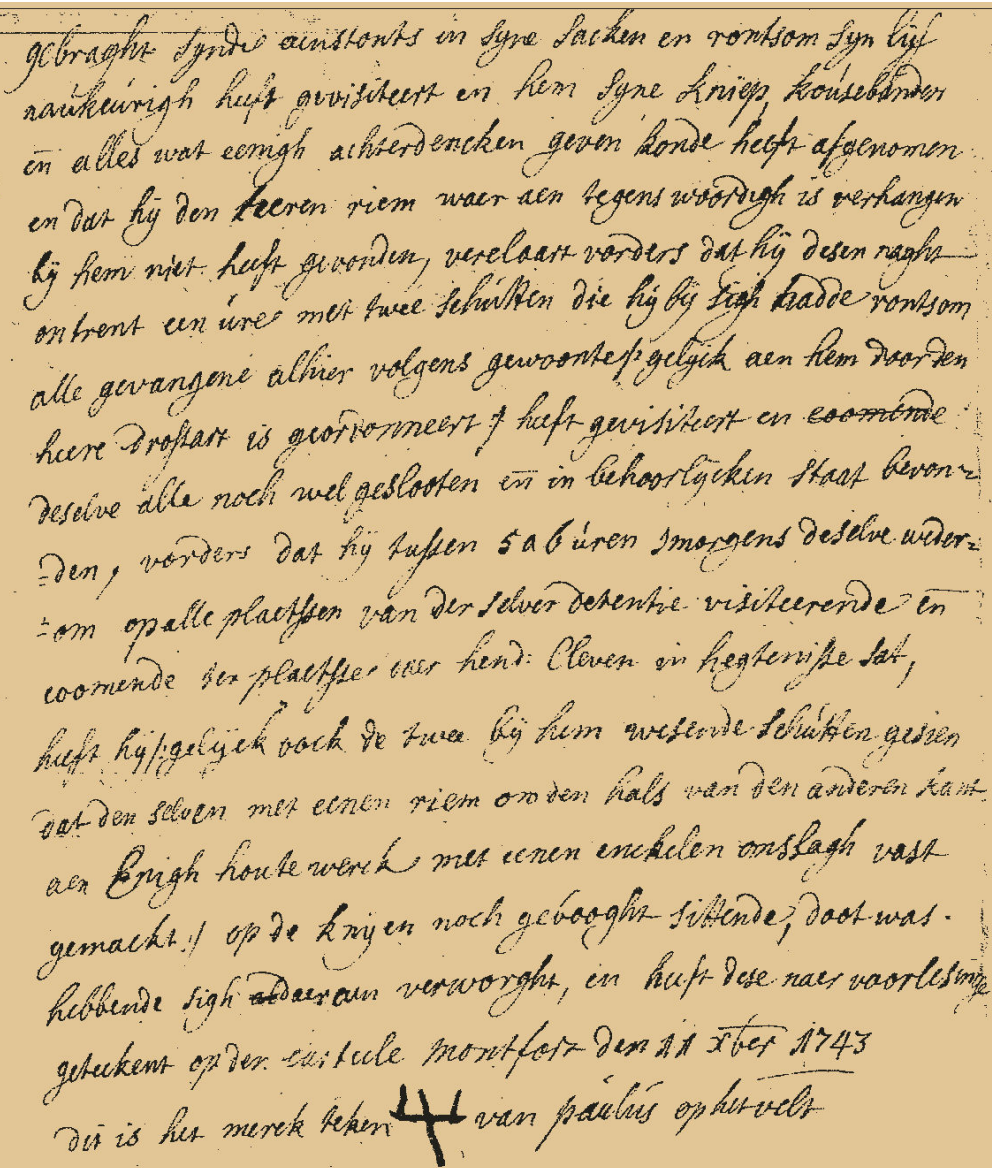 gebraght synde aenstonts in syne sacken en rontsom syn lijf
naukeurigh heeft gevisiteert en hem syne kniep, kousebanden
en̄ alles wat eenigh achterdencken geven konde heeft afgenomen
en dat hij den leeren riem waer aen tegenswoordigh is verhangen
bij hem niet heeft gevonden, verclaart vorders dat hij desen naght
ontrent een ure met twee schutten die hij bij sigh hadde rontsom
alle gevangene alhier volgens gewoonte /: gelijck aen hem door den
heere drossart is geordonneert :/ heeft gevisiteert en coomende
deselve alle noch wel geslooten en̄ in behoorlijcken staat bevon=
=den, vorders dat hij tussen 5 a 6 uren smorgens deselve weder=
=om op alle plaetssen van der selver detentie visiteerende en̄
coomende ter plaetsse waer hend: Cleven in hegtenisse sat,
heeft hij /: gelijck oock de twee bij hem wesende schutten gesien
dat den selven met eenen riem om den hals van den anderen kant
aen Enigh houte werck met eenen enckelen omslagh vast
gemackt :/ op de knijen noch gebooght sittende, doot was.
hebbende sigh daer aen verworght, en heeft dese naer voorlesinge
geteekent op den casteele montfort den 11 xber 1743
dit is het merck teken van paulus ophetvelt